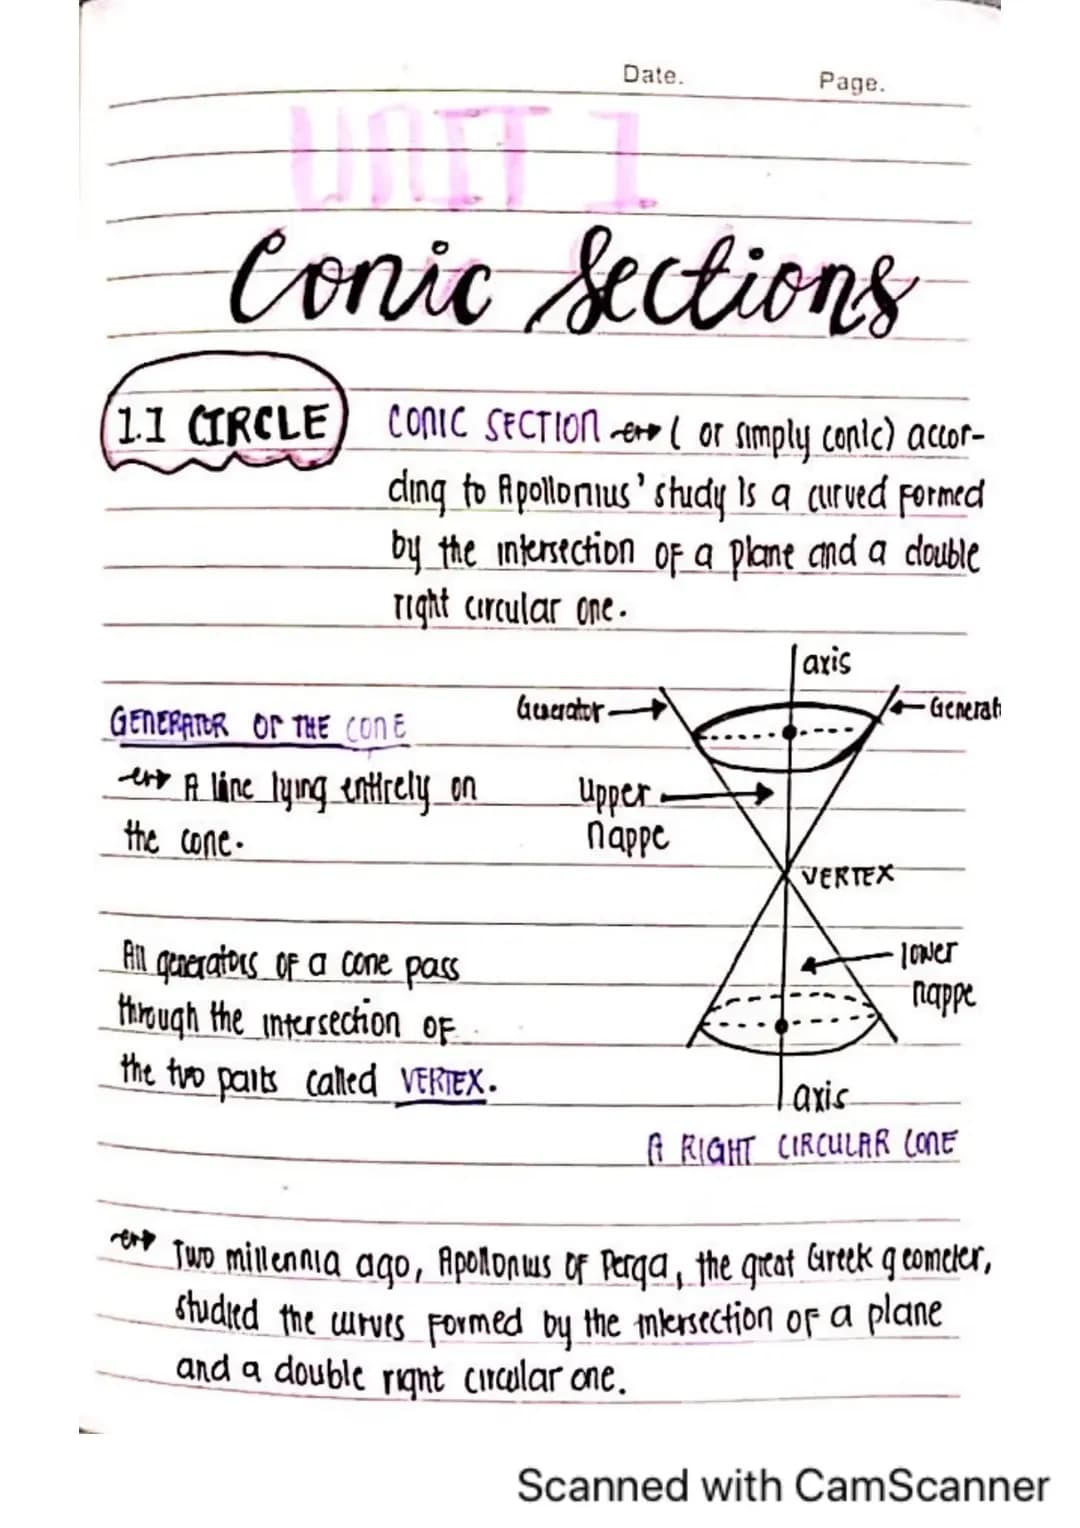 Date. Page.
UNIT 1
Conic Sections
1.1 CIRCLE
CONIC SECTION → ( or simply conic) accor-
ding to Apollonius' study is a curved formed
by the intersection of a plane and a double
right circular one.
axis
Generator
Generat
GENERATOR OF THE CONE
→ A line lying entirely on
the cone.
Upper
nappe
VERTEX
All generators of a cone pass
through the intersection of
the two parts called VERTEX.
lower
nappe
axis
A RIGHT CIRCULAR CONE
→ Two millennia ago, Apollonius of Perga, the great Greek geometer,
studied the curves formed by the intersection of a plane
and a double right circular one.
Scanned with CamScanner